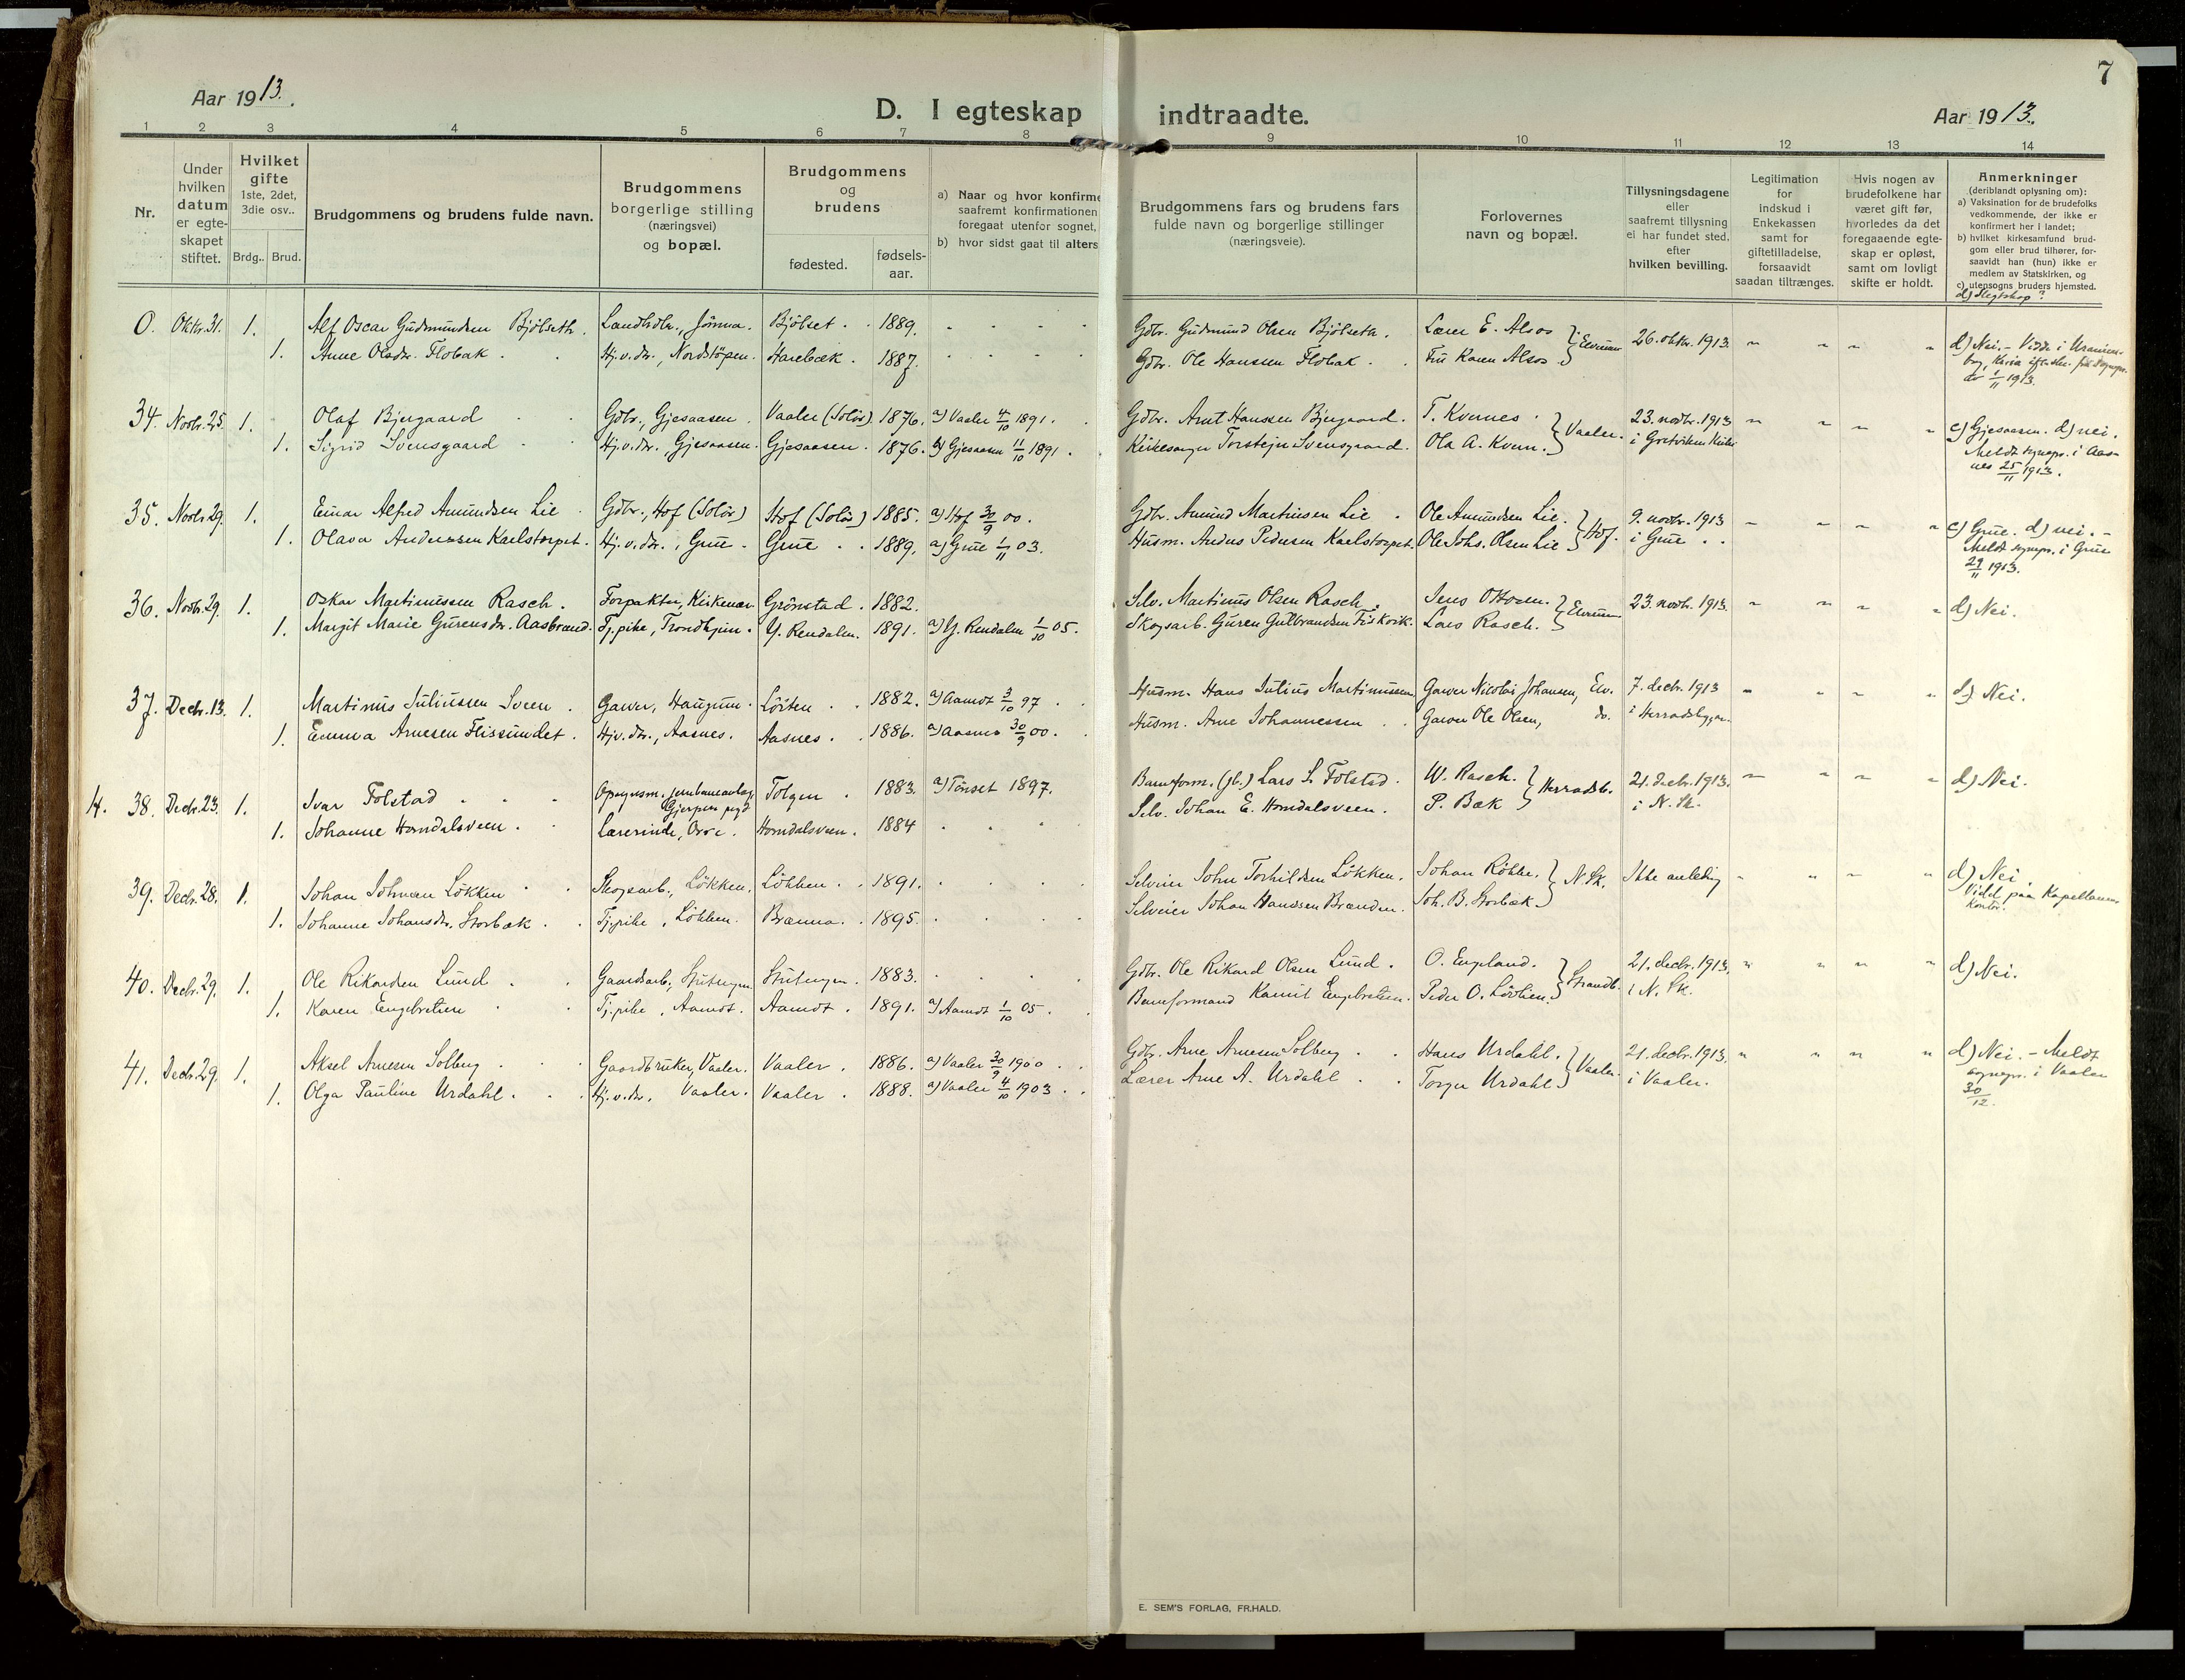 Aar 1913.
D. I egteskap indtraadte.
Aar 1913.
7
1 2 3 4 5 6 7 8 9 10 11 12 13 14
Nr.
Under
hvilken
datum
er egte-
skapet
stiftet.
Hvilket
gifte
1ste, 2det,
3die osv..
Brdg.. Brud.
Brudgommens og brudens fulde navn.
Brudgommens
borgerlige stilling
(næringsvei)
og bopæl.
Brudgommens
og
brudens
fødested.
fødsels-
aar.
a) Naar og hvor konfirme
saafremt konfirmationen
foregaat utenfor sognet,
b) hvor sidst gaat til alters
Brudgommens fars og brudens fars
fulde navn og borgerlige stillinger
(næringsveie).
Forlovernes
navn og bopæl.
Tillysningsdagene
eller
saafremt tillysning
ei har fundet sted,
efter
hvilken bevilling.
Legitimation
for
indskud i
Enkekassen
samt for
giftetilladelse,
forsaavidt
saadan tiltrænges.
Hvis nogen av
brudefolkene har
været gift før,
hvorledes da det
foregaaende egte-
skap er opløst,
samt om lovligt
skifte er holdt.
Anmerkninger
(deriblandt oplysning om):
a) Vaksination for de brudefolks
vedkommende, der ikke er
konfirmert her i landet;
b) hvilket kirkesamfund brud-
gom eller brud tilhører, for-
saavidt han (hun) ikke er
medlem av Statskirken, og
c) utensogns bruders hjemsted.
d) Slegtskap?
0. Oktr. 31. 1. Alf Oscar Gudmundsen Bjölseth. Landhdlr., Jömna. Bjölset. 1889. Gdbr. Gudmund Olsen Bjölseth. Lærer E. Alsos } Elverum 26. oktr. 1913. d) Nei. - Viede i
1. Anne Olsdtr. Flobak. Hj.v.dtr., Nordstöpen. Harebæk. 1887. Gdbr. Ole Hanssen Flobak. Fru Karen Alsos
1/11 1913.
34. Novbr. 25. 1. Olaf Bjergaard Gdbr., Gjesaasen. Vaaler (Solör) 1876. a) Vaaler 4/10 1891. Gdbr. Arnt Hanssen Bjergaard. T. Kvernes. } Vaaler. 23. novbr. 1913 c) Gjesaasen. d) nei.
1. Sigrid Svensgaard Hj.v.dtr., Gjesaasen. Gjesaasen. 1876. a) Gjesaasen 11/10 1891. Kirkesanger Torstejn Svensgaard. Ola A. Kvern. i Meldt sognepr. i Aas-
nes 25/11 1913.
35. Novbr. 29. 1. Einar Alfred Amundsen Lie Gdbr., Hof (Solör) Hof (Solör) 1885. a) Hof 30/9 00. Gdbr. Amund Martinsen Lie. Ole Amundsen Lie. } Hof. 9. novbr. 1913 c) Grue. d) nei. -
1. Olava Anderssen Karlstorpet. Hj.v.dtr., Grue. Grue 1889. a) Grue 1/11 03. Husm. Anders Pedersen Karlstorpet. Ole Johs. Olsen Lie i Grue. Meldt sognepr. i Grue
29/11 1913.
36. Novbr. 29. 1. Oskar Martinussen Rasch. Forpakter, Kirkenær. Grönstad. 1882. Selv. Martinus Olsen Rasch. Jens Ottosen. } Elverum 23. novbr. 1913. d) Nei.
1. Margit Marie Gurensdtr. Aasbrænd. Tj.pike, Trondhjem. Y. Rendalen. 1891. a) Y. Rendalen 1/10 05. Skogsarb. Guren Gulbrandsen Fiskvik. Lars Rasch.
37. Decbr. 13. 1. Martinus Juliussen Sveen. Garver, Haugum. Löiten 1882. a) Aamot 3/10 97. Husm. Hans Julius Martinussen. Garver Nicolai Johansen, Elv. 7. decbr. 1913 d) Nei.
1. Emma Arnesen Flissundet. Hjv.dtr., Aasnes. Aasnes. 1886. a) Aasnes 30/9 00. Husm. Arne Johannessen. Garver Ole Olsen, do. i Herradsbygden.
H. 38. Decbr. 23. 1. Ivar Tolstad. Opsynsm. jernbaneanlæg, Tolgen. 1883. a) Tönset 1897. Baneform. (gb.) Lars L. Tolstad. W. Rasch. } Herradsb. 21. decbr. 1913. d) Nei.
Gjerpen
1. Johanne Horndalsveen. Lærerinde, Horndalsveen. 1884 Selv. Johan E. Horndalsveen. P. Bæk i N. Sk.
39. Decbr. 28. 1. Johan Johnsen Lökken Skogsarb., Lökken. Lökken. 1891. Selveier John Torkildsen Lökken. Johan Rökke. } N. Sk. Ikke anledng d) Nei.
Viet paa Kapellanens
1. Johanne Johansdtr. Storbæk. Tj.pike, Lökken. Brænna. 1895. Selveier Johan Hanssen Brænden. Joh. B. Storbæk. kontor.
40. Decbr. 29. 1. Ole Rikardsen Lund Gaardsarb., 1883. Gdbr. Ole Rikard Olsen Lund. O. England. } Strandb. 21. decbr. 1913. d) Nei.
1. Karen Engebretsen Tj.pike, Aamot. Aamot. 1891. a) Aamot 1/10 05. Baneformand Kamit Engebretsen. Peder O. Lövlien. i N. Sk.
41. Decbr. 29. 1. Aksel Arnesen Solberg Gaardbruker, Vaaler. Vaaler. 1886. a) Vaaler 30/9 1900 Gdbr. Arne Arnesen Solberg. Hans Urdahl. } Vaaler. 21. decbr. 1913. d) Nei. - Meldt
1. Olga Pauline Urdahl. Hj.v.dtr. Vaaler. Vaaler. 1888. a) Vaaler 4/10 1903. Lærer Arne A. Urdahl. Torger Urdahl i Vaaler. sognepr. i Vaaler
30/12.
E. SEM'S FORLAG, FR.HALD.